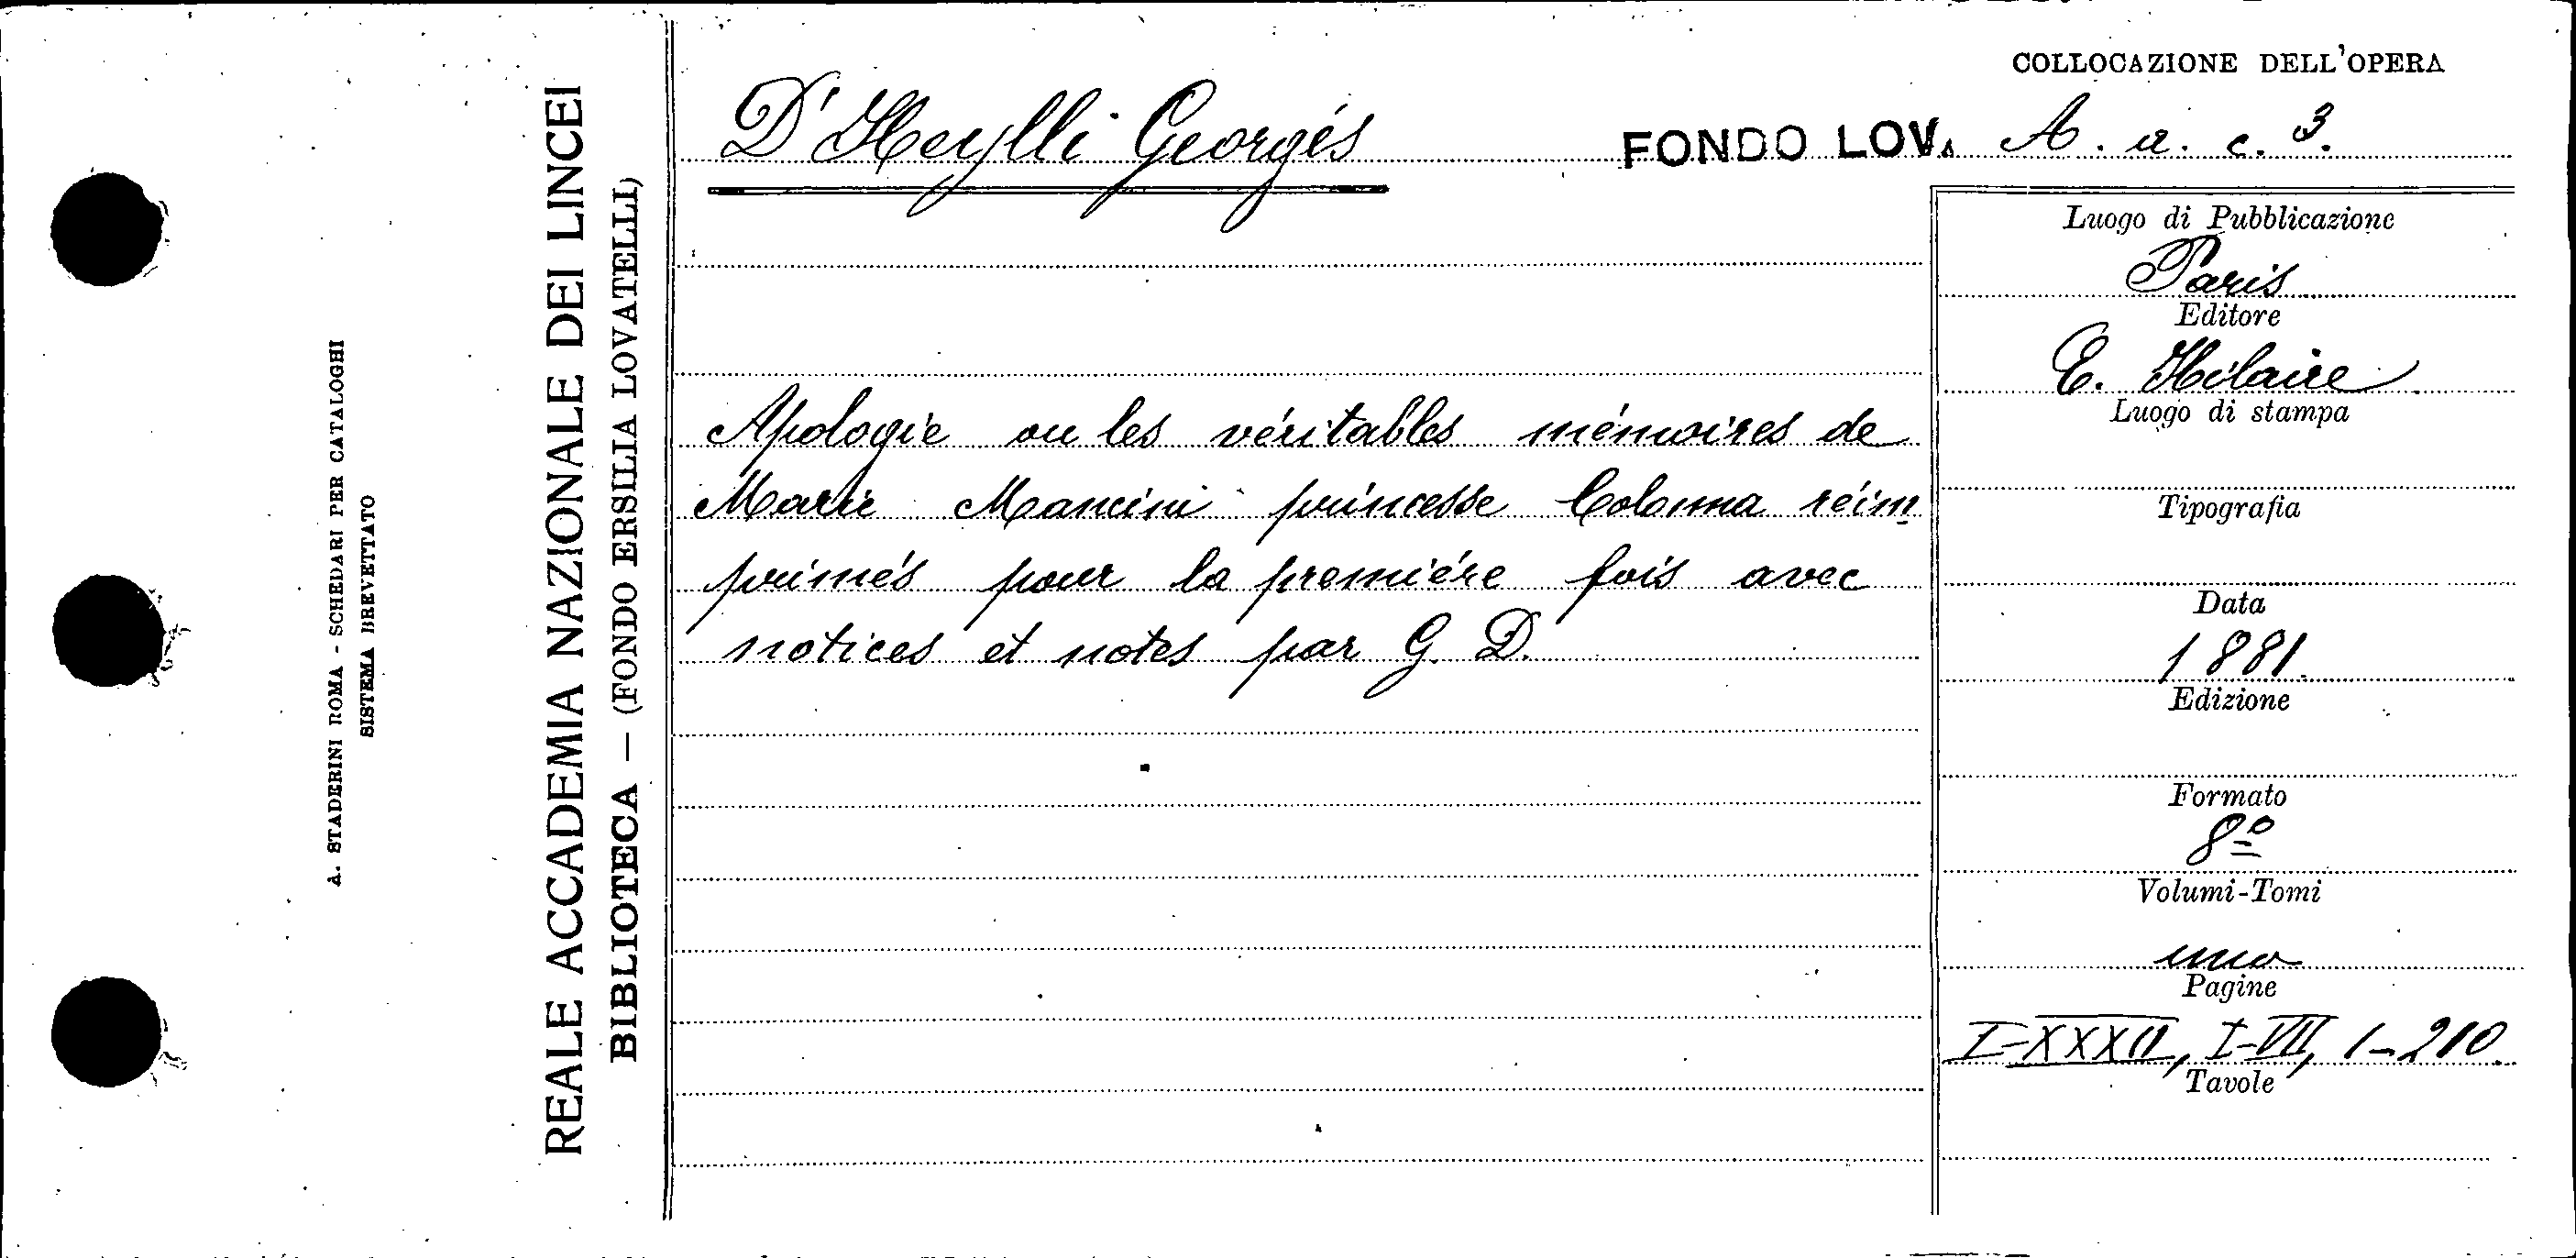 COLLOCAZIONE DELL'OPERA
D'Heylli Georges
FONDO LOV. A. a. c. 3.
Apologie ou les véritables mémoires de
Marie Mancini princesse Colonna réim
primés pour la première fois avec
notices et notes par G. D.
Luogo di Pubblicazione
Paris
Editore
E. Hilaire
Luogo di stampa
Tipografia
Data
1881.
Edizione
Formato
8º
Volumi-Tomi
uno
Pagine
I-XXXII, I-VII, 1-210.
Tavole
REALE ACCADEMIA NAZIONALE DEI LINCEI
BIBLIOTECA — (FONDO ERSILIA LOVATELLI)
A. STADERINI ROMA - SCHEDARI PER CATALOGHI
SISTEMA BREVETTATO